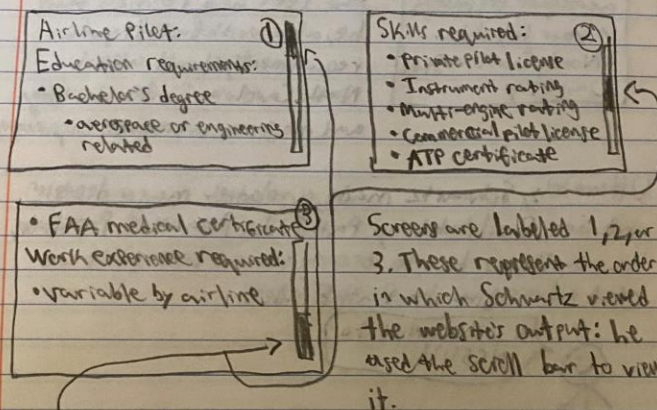 Airline Pilot: 1
Education requirements:
• Bachelor's degree
• aerospace or engineering
related
Skills required: 2
• Private pilot license
• Instrument rating
• Multi-engine rating
• Commercial pilot license
• ATP certificate
• FAA medical certificate 3
Work experience required:
• variable by airline
Screens are labeled 1, 2, or
3. These represent the order
in which Schwartz viewed
the website's output: he
used the scroll bar to view
it.